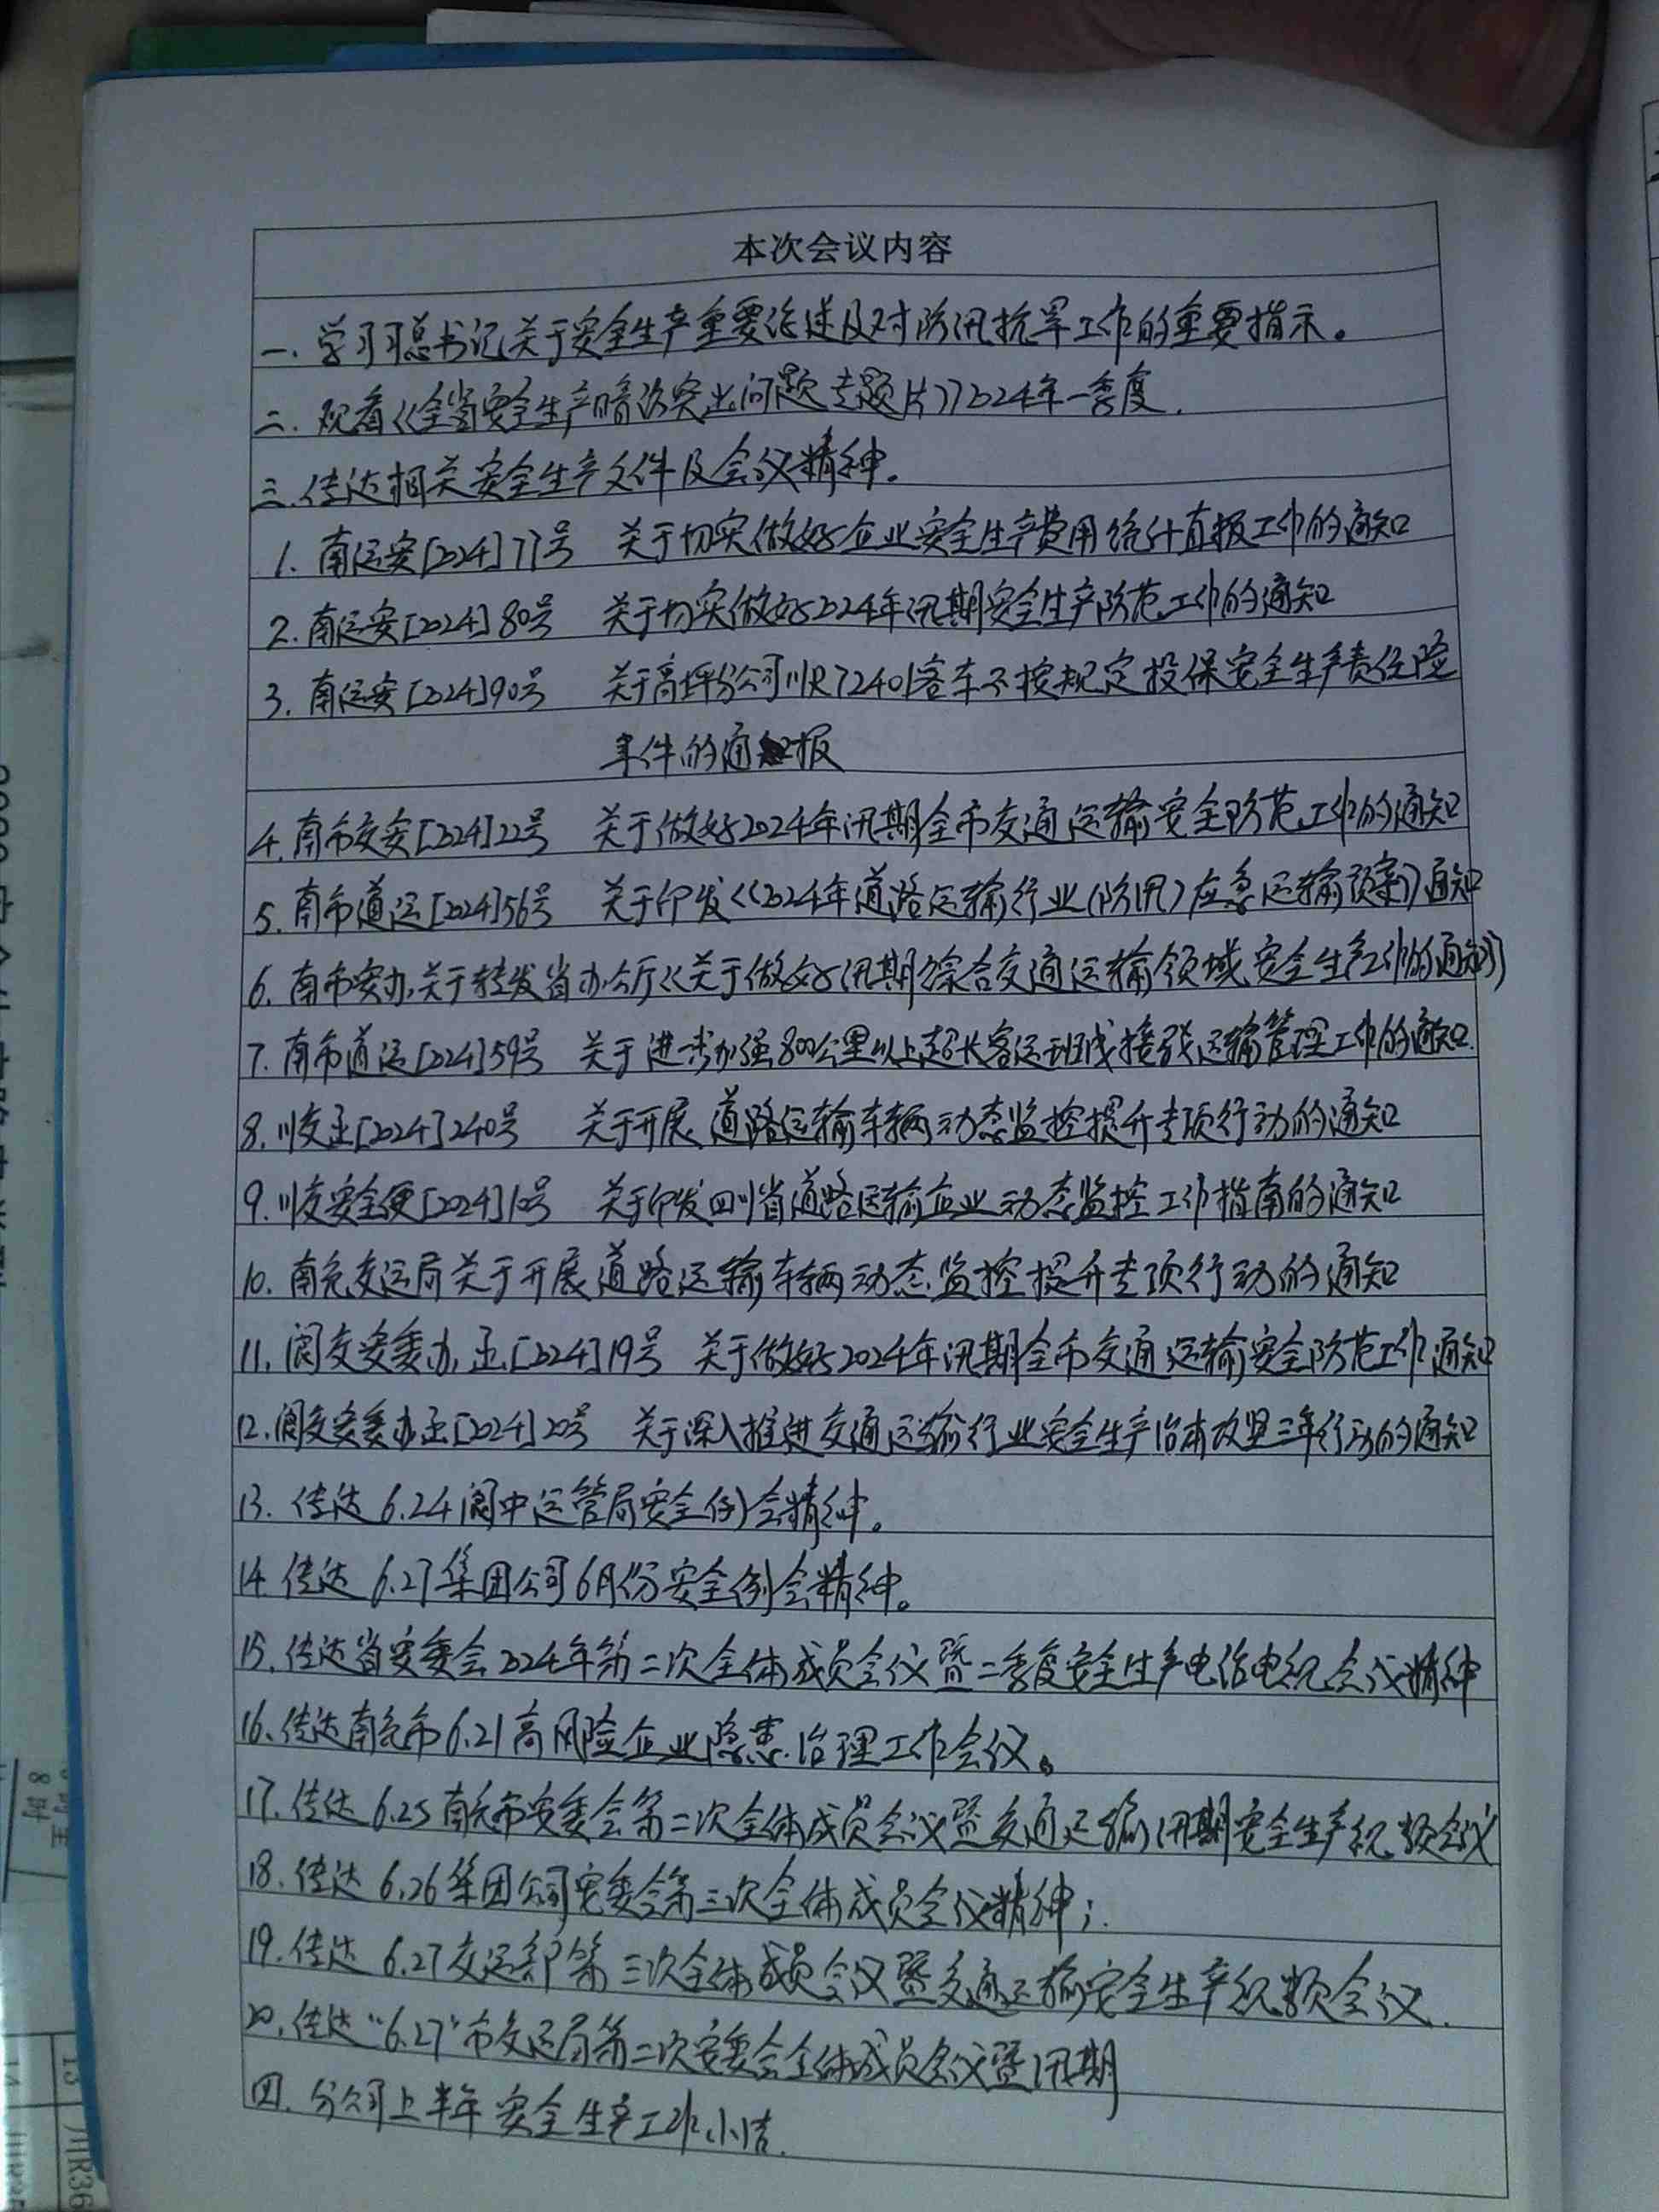 本次会议内容
一. 学习习总书记关于安全生产重要论述及对防汛抗旱工作的重要指示。
二. 观看《全省安全生产暗访突出问题专题片》2024年一季度.
三. 传达相关安全生产文件及会议精神。
1. 南运安[2024]77号 关于切实做好企业安全生产费用统计直报工作的通知
2. 南运安[2024]80号 关于切实做好2024年汛期安全生产防范工作的通知
3. 南运安[2024]90号 关于高坪分公司川R72401客车不按规定投保安全生产责任险
事件的通报
4. 南市交安[2024]22号 关于做好2024年汛期全市交通运输安全防范工作的通知
5. 南市道运[2024]56号 关于印发《2024年道路运输行业(防汛)应急运输预案》通知
6. 南市安办关于转发省办公厅《关于做好汛期综合交通运输领域安全生产工作的通知》
7. 南市道运[2024]59号 关于进一步加强800公里以上超长客运班线接驳运输管理工作的通知.
8. 川交函[2024]240号 关于开展道路运输车辆动态监控提升专项行动的通知
9. 川交安全便[2024]10号 关于印发四川省道路运输企业动态监控工作指南的通知
10. 南充交运局关于开展道路运输车辆动态监控提升专项行动的通知
11. 阆交安委办函[2024]19号 关于做好2024年汛期全市交通运输安全防范工作通知
12. 阆交安委办函[2024]20号 关于深入推进交通运输行业安全生产治本攻坚三年行动的通知
13. 传达6.24阆中运管局安全例会精神。
14. 传达6.27集团公司6月份安全例会精神。
15. 传达省安委会2024年第二次全体成员会议暨二季度安全生产电话电视会议精神
16. 传达南充市6.21高风险企业隐患治理工作会议。
17. 传达6.25南充市安委会第二次全体成员会议暨交通运输汛期安全生产视频会议
18. 传达6.26集团公司安委会第三次全体成员会议精神;.
19. 传达6.27交运部第三次全体成员会议暨交通运输安全生产视频会议.
20. 传达"6.27"市交运局第二次安委会全体成员会议暨汛期
四. 分公司上半年安全生产工作小结.